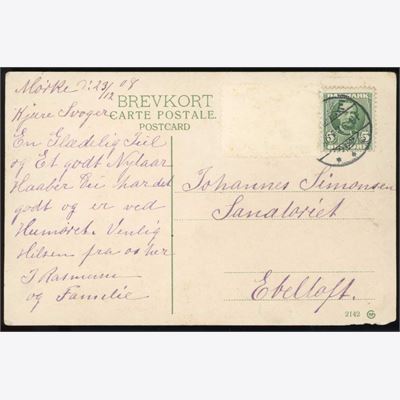 Mørke d: 23/12 08
BREVKORT
CARTE POSTALE.
POSTCARD
Kjære Svoger
En Glædelig Juul
og Et godt Nytaar
Haaber Du har det
godt og er ved
Humøret. Venlig
Hilsen fra os her
J Rasmussen
og Familie
DANMARK
5 5
Johannes Simonsen
Sanatoriet
Ebeltoft.
2142